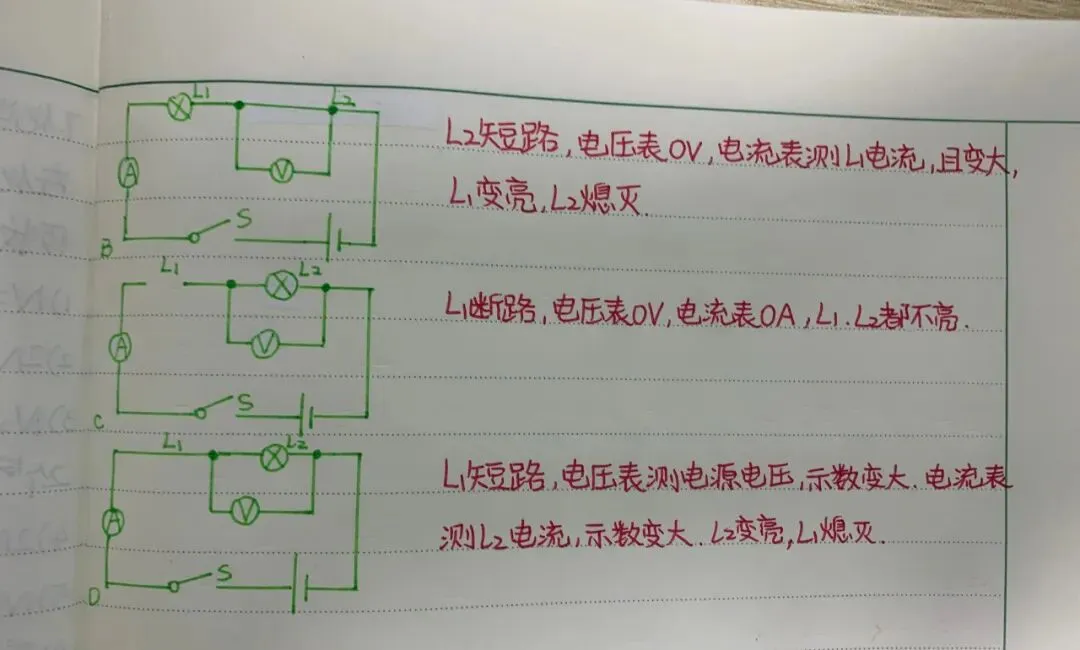 L1 L2
L2短路,电压表0V,电流表测L1电流,且变大,
A V
L1变亮,L2熄灭.
S
B
L1 L2
L1断路,电压表0V,电流表0A,L1.L2都不亮.
A V
S
C
L1 L2
L1短路,电压表测电源电压,示数变大.电流表
A V
测L2电流,示数变大.L2变亮,L1熄灭.
S
D